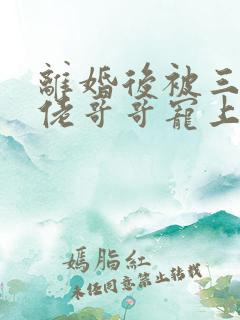 離婚後被三
佬哥哥寵上
嫣脂紅
未經同意禁止轉載